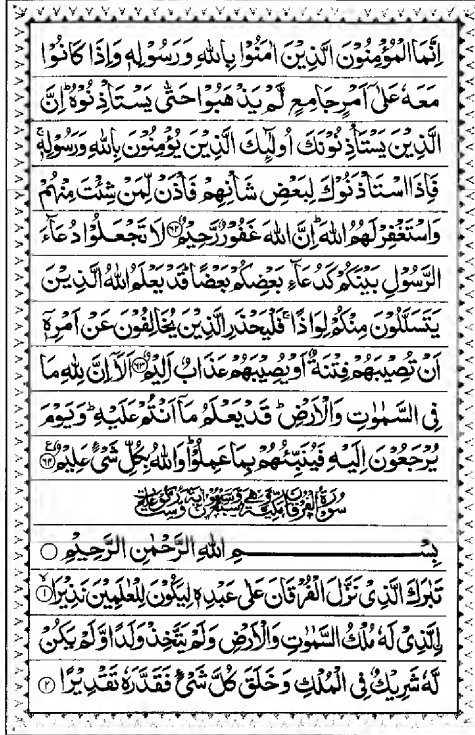 اِنَّمَا الْمُؤْمِنُوْنَ الَّذِيْنَ اٰمَنُوْا بِاللّٰهِ وَرَسُوْلِهٖ وَاِذَا كَانُوْا
مَعَهٗ عَلٰٓى اَمْرٍ جَامِعٍ لَّمْ يَذْهَبُوْا حَتّٰى يَسْتَاْذِنُوْهُ ؕ اِنَّ
الَّذِيْنَ يَسْتَاْذِنُوْنَكَ اُولٰٓئِكَ الَّذِيْنَ يُؤْمِنُوْنَ بِاللّٰهِ وَرَسُوْلِهٖ ۚ
فَاِذَا اسْتَاْذَنُوْكَ لِبَعْضِ شَاْنِهِمْ فَاْذَنْ لِّمَنْ شِئْتَ مِنْهُمْ
وَاسْتَغْفِرْ لَهُمُ اللّٰهَ ؕ اِنَّ اللّٰهَ غَفُوْرٌ رَّحِيْمٌ ﴿۶۲﴾ لَا تَجْعَلُوْا دُعَآءَ
الرَّسُوْلِ بَيْنَكُمْ كَدُعَآءِ بَعْضِكُمْ بَعْضًا ؕ قَدْ يَعْلَمُ اللّٰهُ الَّذِيْنَ
يَتَسَلَّلُوْنَ مِنْكُمْ لِوَاذًا ۚ فَلْيَحْذَرِ الَّذِيْنَ يُخَالِفُوْنَ عَنْ اَمْرِهٖٓ
اَنْ تُصِيْبَهُمْ فِتْنَةٌ اَوْ يُصِيْبَهُمْ عَذَابٌ اَلِيْمٌ ﴿۶۳﴾ اَلَاۤ اِنَّ لِلّٰهِ مَا
فِى السَّمٰوٰتِ وَالْاَرْضِ ؕ قَدْ يَعْلَمُ مَاۤ اَنْتُمْ عَلَيْهِ ؕ وَيَوْمَ
يُرْجَعُوْنَ اِلَيْهِ فَيُنَبِّئُهُمْ بِمَا عَمِلُوْا ؕ وَاللّٰهُ بِكُلِّ شَىْءٍ عَلِيْمٌ ﴿۶۴﴾
سُوْرَةُ الْفُرْقَانِ مَكِّيَّةٌ وَّهِىَ سَبْعٌ وَّسَبْعُوْنَ اٰيَةً وَّسِتُّ رُكُوْعَاتٍ
بِسْمِ اللّٰهِ الرَّحْمٰنِ الرَّحِيْمِ ○
تَبٰرَكَ الَّذِىْ نَزَّلَ الْفُرْقَانَ عَلٰى عَبْدِهٖ لِيَكُوْنَ لِلْعٰلَمِيْنَ نَذِيْرَا ۙ ﴿۱﴾
ۨالَّذِىْ لَهٗ مُلْكُ السَّمٰوٰتِ وَالْاَرْضِ وَلَمْ يَتَّخِذْ وَلَدًا وَّلَمْ يَكُنْ
لَّهٗ شَرِيْكٌ فِى الْمُلْكِ وَخَلَقَ كُلَّ شَىْءٍ فَقَدَّرَهٗ تَقْدِيْرًا ﴿۲﴾